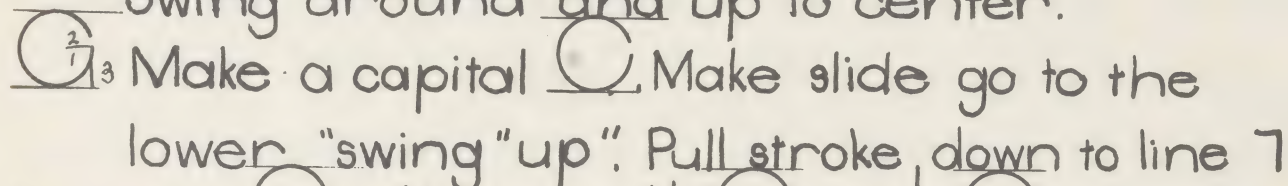 Swing around and up to center.
G 2 1 3 Make a capital C. Make slide go to the
lower "swing "up". Pull stroke, down to line